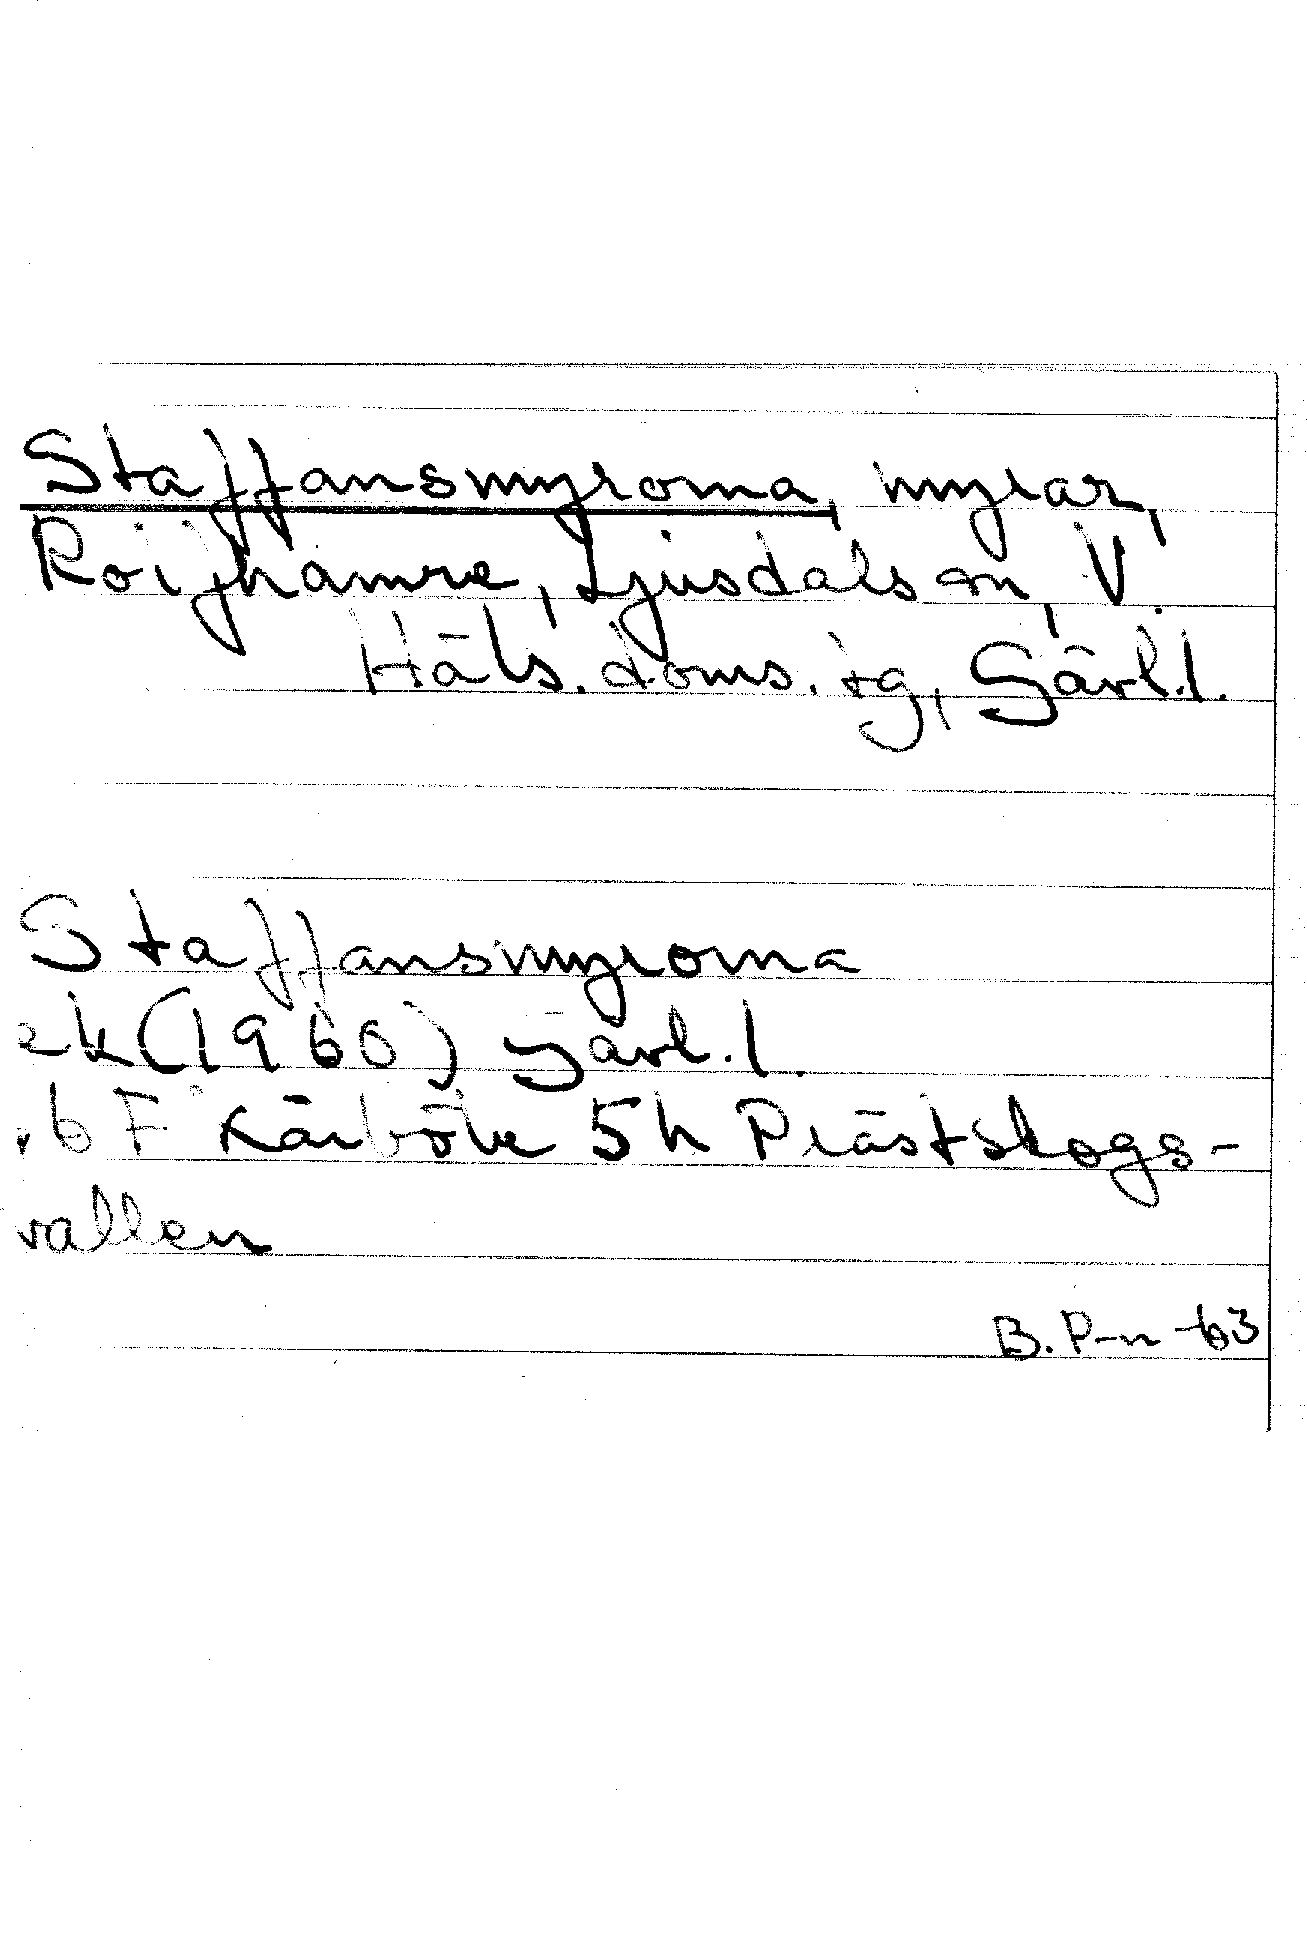 Staffansmyroma, myrar,
Röijhamre, Ljusdals sn, V.
Häls. doms. tg, Gävl.l.
Staffansmyroma
ek (1960) Gävl.l.
6 F Kårböle 5h Prästskogs-
vallen
B. P-n -63